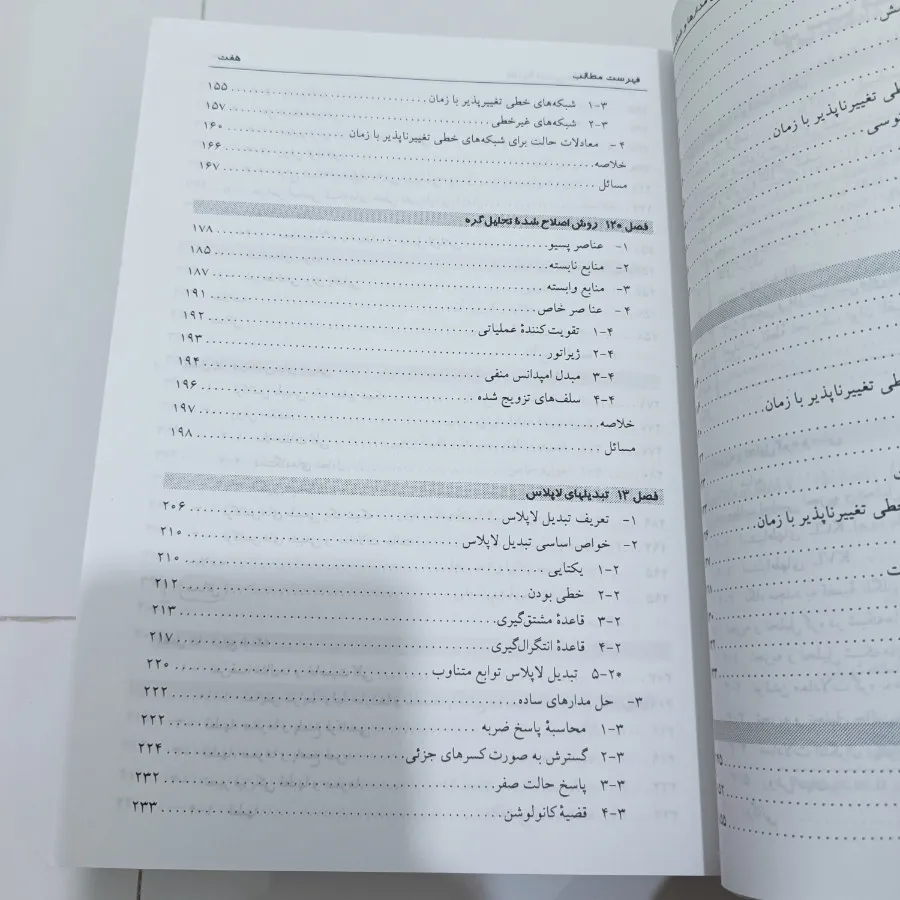 فهرست مطالب هفت
۱-۳ شبکه‌های خطی تغییرپذیر با زمان ۱۵۵
۲-۳ شبکه‌های غیرخطی ۱۵۷
۴- معادلات حالت برای شبکه‌های خطی تغییرناپذیر با زمان ۱۶۰
خلاصه ۱۶۶
مسائل ۱۶۷
فصل ۱۲۰ روش اصلاح شدهٔ تحلیل گره
۱- عناصر پسیو ۱۷۸
۲- منابع نابسته ۱۸۵
۳- منابع وابسته ۱۸۷
۴- عناصر خاص ۱۹۱
۱-۴ تقویت کنندهٔ عملیاتی ۱۹۲
۲-۴ ژیراتور ۱۹۳
۳-۴ مبدل امپدانس منفی ۱۹۴
۴-۴ سلف‌های تزویج شده ۱۹۶
خلاصه ۱۹۷
مسائل ۱۹۸
فصل ۱۳ تبدیلهای لاپلاس
۱- تعریف تبدیل لاپلاس ۲۰۶
۲- خواص اساسی تبدیل لاپلاس ۲۱۰
۱-۲ یکتایی ۲۱۰
۲-۲ خطی بودن ۲۱۲
۳-۲ قاعدهٔ مشتق‌گیری ۲۱۳
۴-۲ قاعدهٔ انتگرال‌گیری ۲۱۷
۵-۲* تبدیل لاپلاس توابع متناوب ۲۲۰
۳- حل مدارهای ساده ۲۲۲
۱-۳ محاسبهٔ پاسخ ضربه ۲۲۲
۲-۳ گسترش به صورت کسرهای جزئی ۲۲۴
۳-۳ پاسخ حالت صفر ۲۳۲
۴-۳ قضیهٔ کانولوشن ۲۳۳
تغییرناپذیر با زمان
تغییرناپذیر با زمان
خطی تغییرناپذیر با زمان